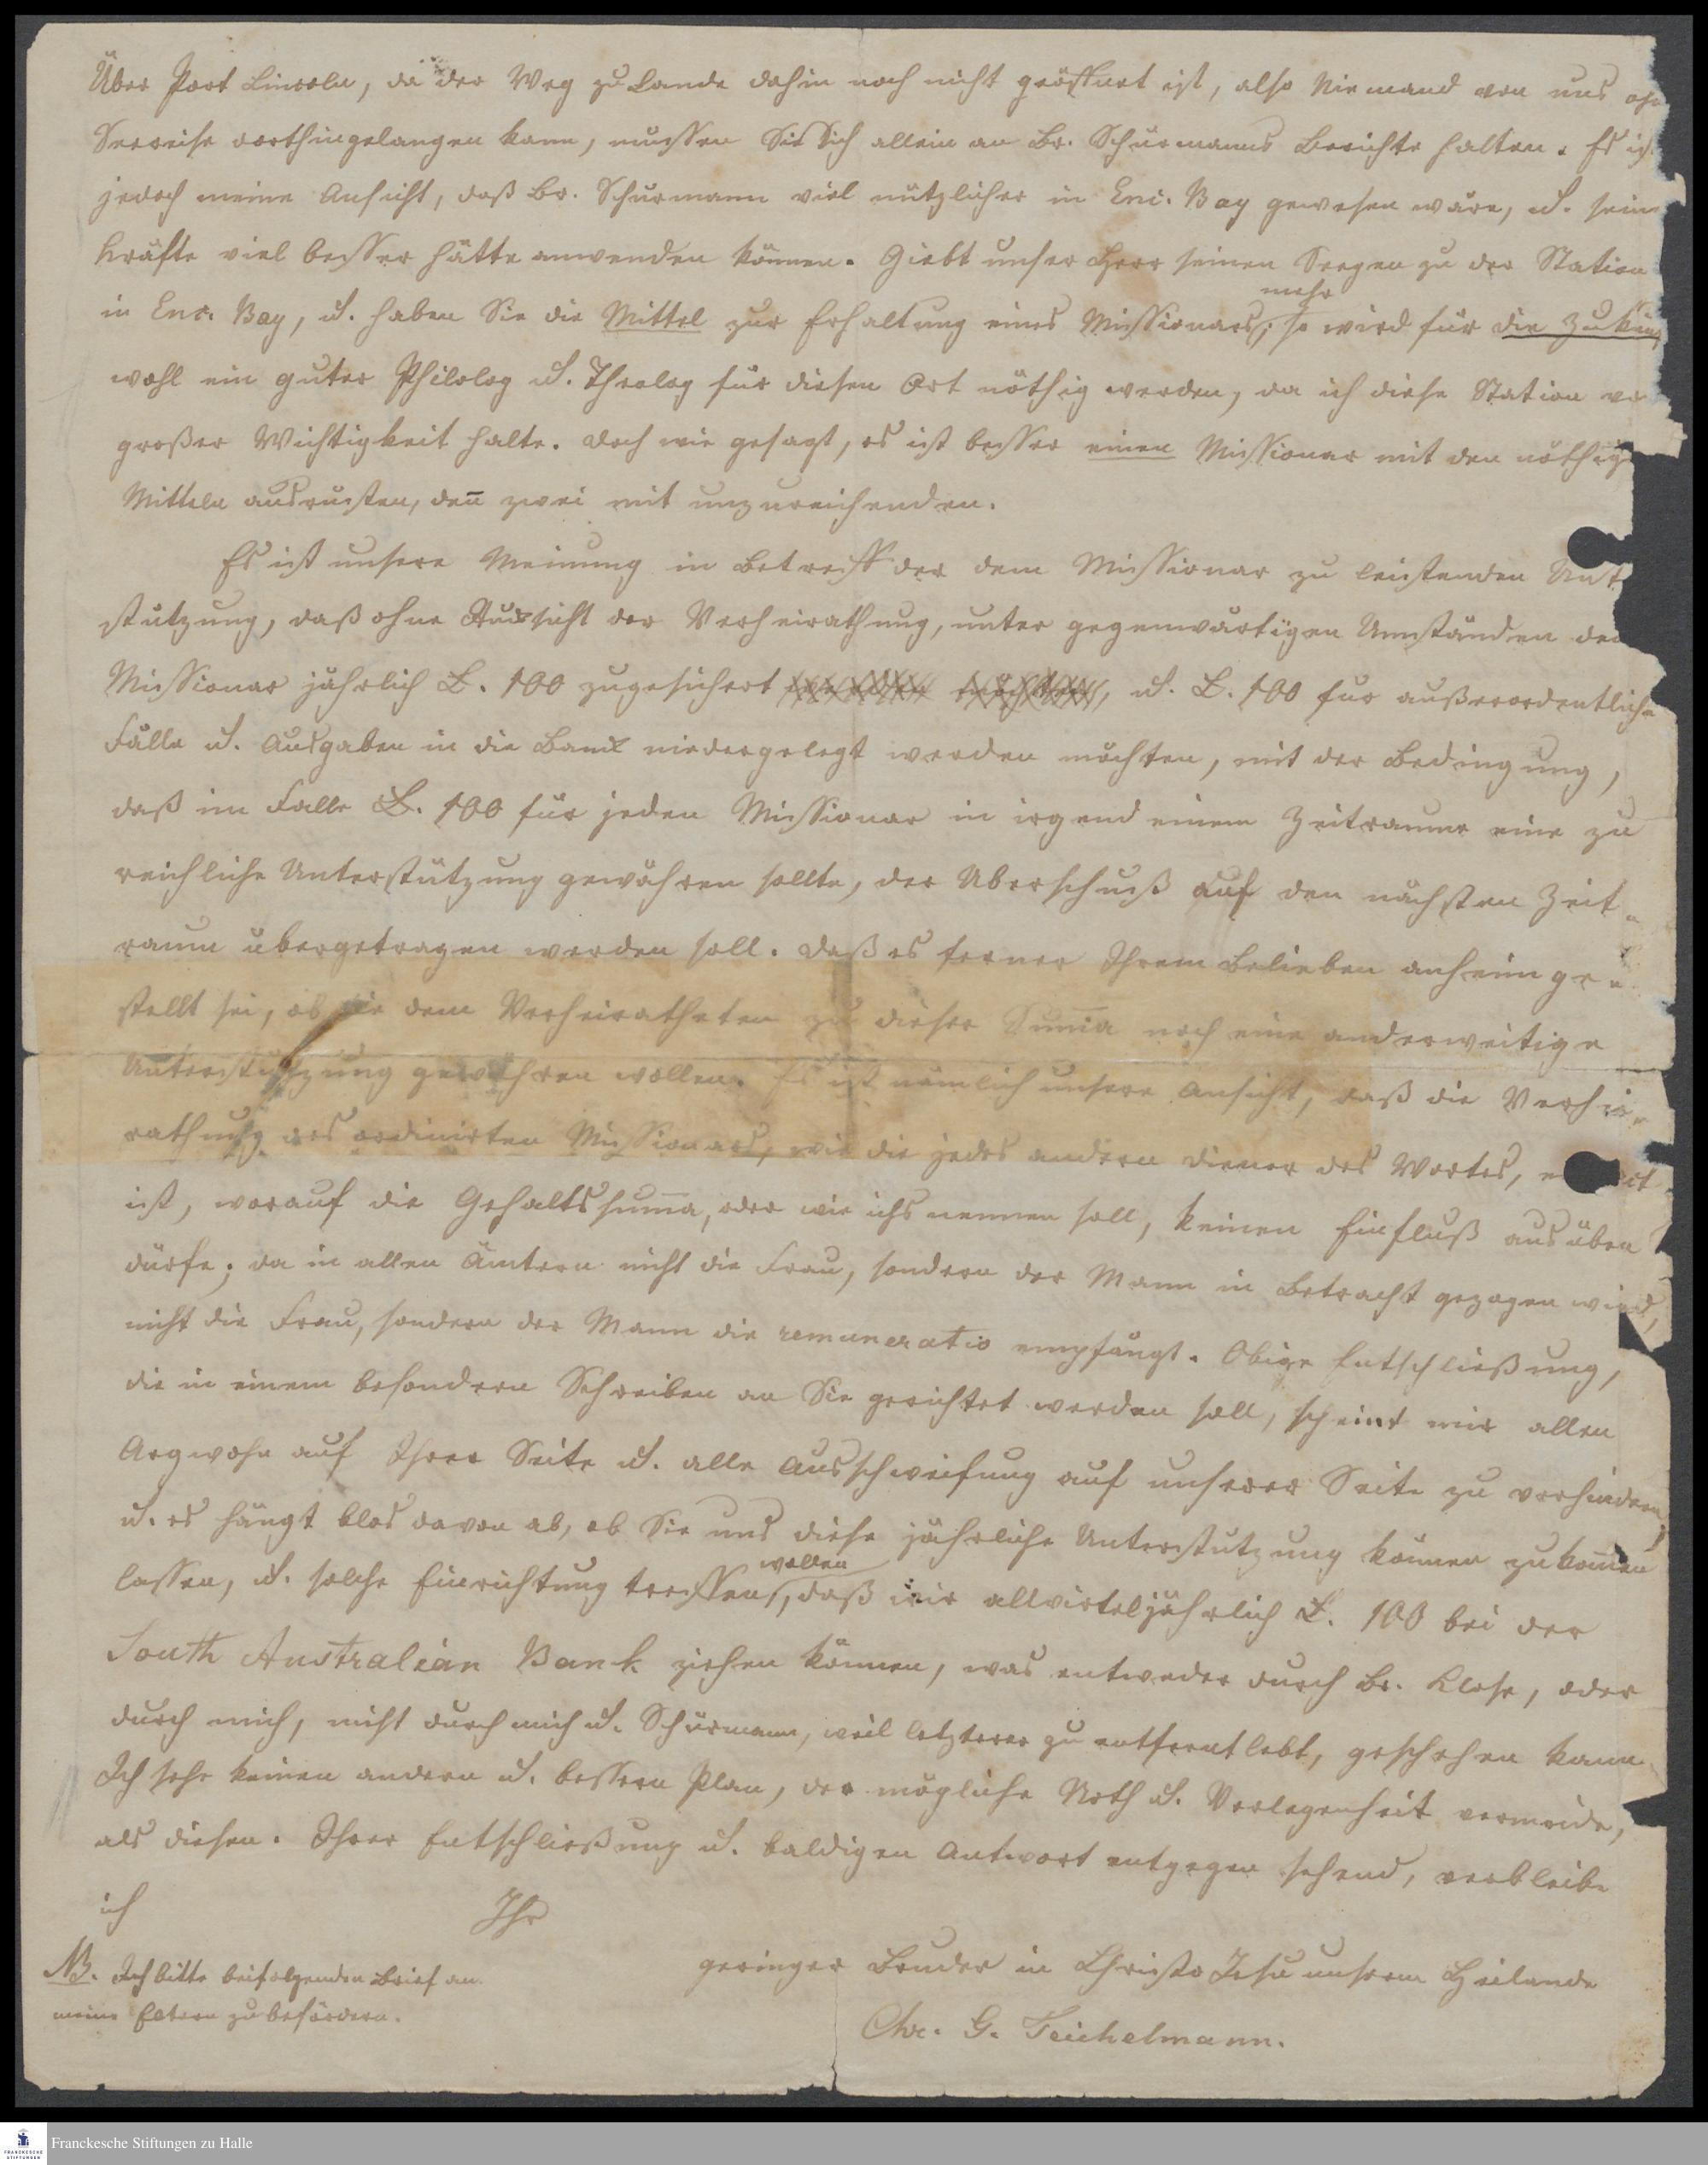 Über Port Lincoln, da der Weg zu Lande dahin noch nicht geöffnet ist, also Niemand von uns
Seereise dorthingelangen kann, müssen Sie sich allein an Br. Schürmanns Berichte halten. Es ist
jedoch meine Ansicht, daß Br. Schürmann viel nützlicher in Enc. Bay gewesen wäre, u. sein
Kräfte viel besser hätte anwenden können. Giebt unser Herr seinen Seegen zu der Station
mehr
in Enc. Bay, u. haben Sie die Mittel zur Erhaltung eines Missionars, so wird für die Zukun
wohl ein guter Philolog u. Theolog für diesen Ort nöthig werden, da ich diese Station
großer Wichtigkeit halte. Doch wie gesagt, es ist besser einen Missionar mit den nöthig
Mitteln ausrüsten, deñ zwei mit unzureichenden.
Es ist unsere Meinung in Betreff der dem Missionar zu leistenden Unt
stützung, daß ohne Aussicht der Verheirathung, unter gegenwärtigen Umständen de
Missionar jährlich L. 100 zugesichert, u. L. 100 für außerordentliche
Fälle u. Ausgaben in die Bank niedergelegt werden möchten, mit der Bedingung,
daß im Falle L. 100 für jeden Missionar in irgend einem Zeitraume eine zu
reichliche Unterstützung gewähren sollte, der Überschuß auf den nächsten Zeit-
raum übergetragen werden soll. Daß es ferner Ihrem Belieben anheim ge-
stellt sei, ob sie dem Verheiratheten zu dieser Sum̄a noch eine anderweitige
Unterstützung gewähren wollen. Es ist nämlich unsere Ansicht, daß die Verhei-
rathung des ordinirten Missionars, wie die jedes andern Diener des Wortes,
ist, worauf die Gehaltssum̄a, oder wie ichs nennen soll, keinen Einfluß ausüben
dürfe; da in allen Ämtern nicht die Frau, sondern der Mann in Betracht gezogen wird,
nicht die Frau, sondern der Mann die remuneratio empfängt. Obige Entschließung,
die in einem besondern Schreiben an Sie gerichtet werden soll, scheint mir allen
Argwohn auf Ihrer Seite u. alle Ausschweifung auf unserer Seite zu verhindern,
u. es hängt blos davon ab, ob Sie uns diese jährliche Unterstützung können zukom̄en
wollen
lassen, u. solche Einrichtung treffen, daß wir allvierteljährlich L. 100 bei der
South Australian Bank ziehen können, was entweder durch Br. Klose, oder
durch mich, nicht durch mich u. Schürmann, weil letzterer zu entfernt lebt, geschehen kann.
Ich sehe keinen andern u. bessern Plan, der mögliche Noth u. Verlegenheit vermeide,
als diesen. Ihrer Entschließung u. baldigen Antwort entgegen sehend, verbleibe
ich Ihr
geringer Bruder in Christo Jesu unserm Heilande
Chr. G. Teichelmann.
NB. Ich bitte beifolgenden Brief an
meine Eltern zu befördern.
FRANCKESCHE STIFTUNGEN
Franckesche Stiftungen zu Halle